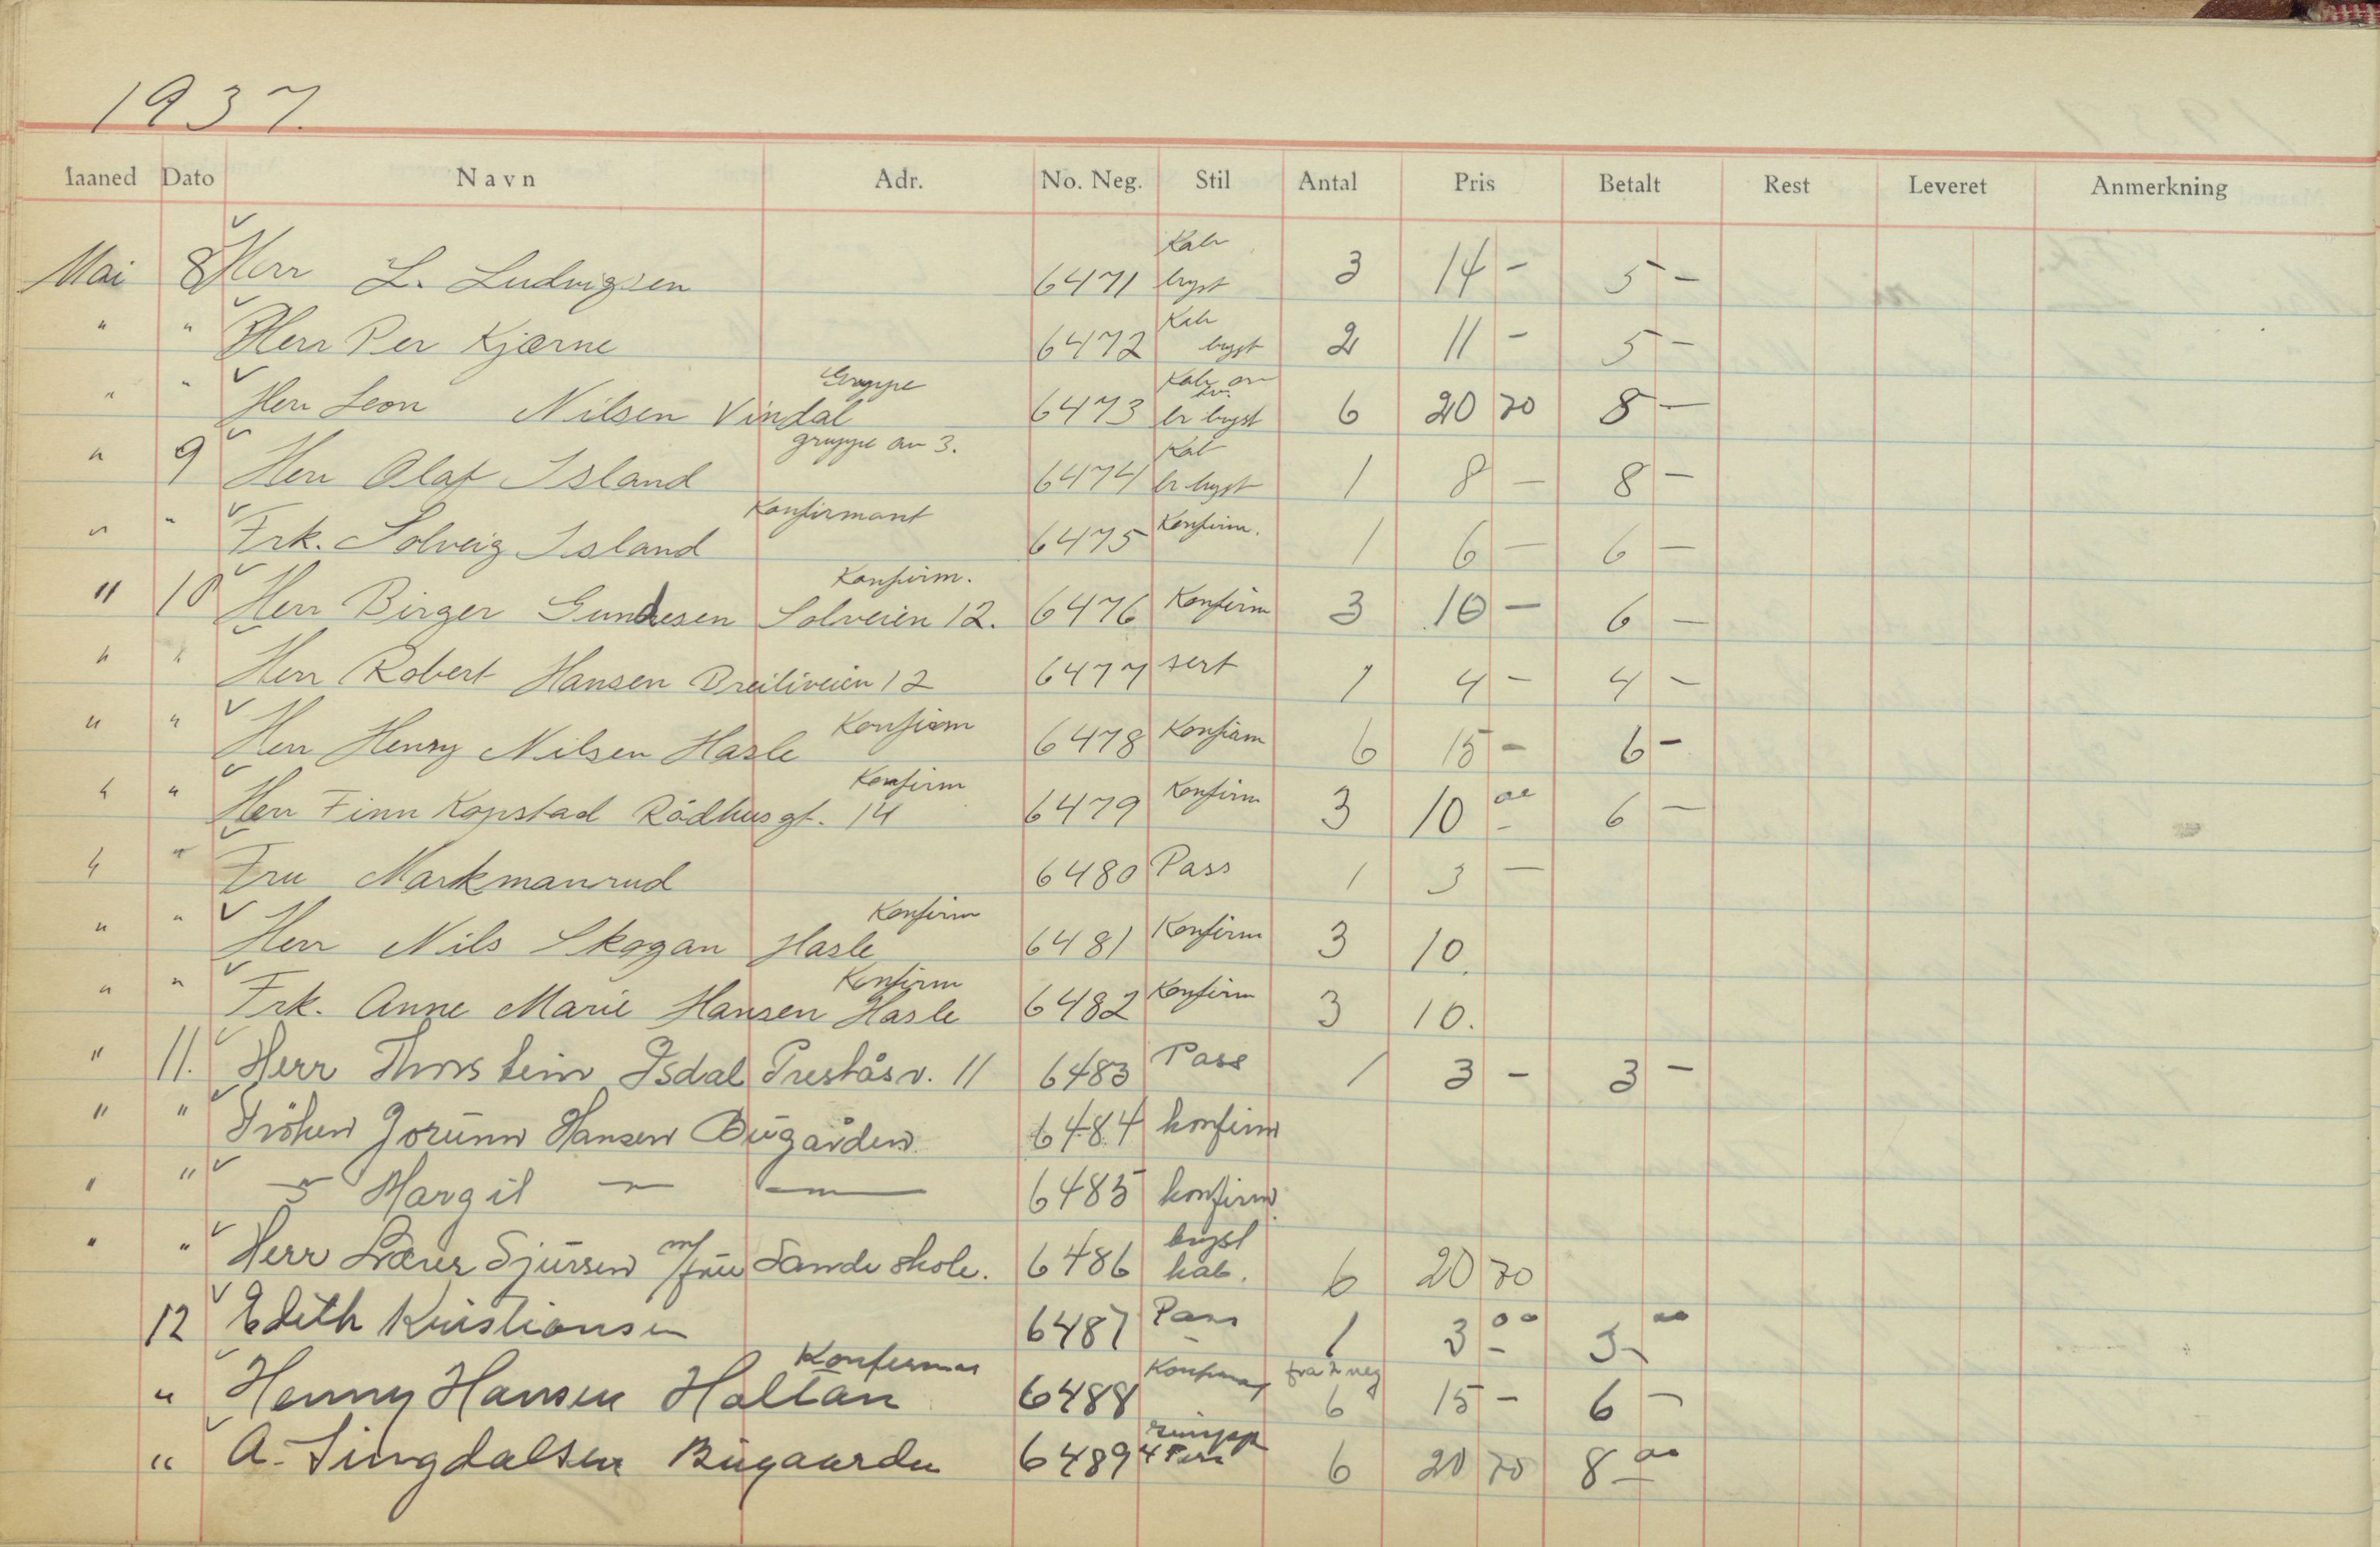 1937.
Maaned Dato Navn Adr. No. Neg. Stil Antal Pris Betalt Rest Leveret Anmerkning
Kab
Mai 8 Herr L. Ludvigsen 6471 bryst 3 14 - 5 -
Kab
" " Herr Per Kjærne 6472 bryst 2 11 - 5 -
Gruppe Kab
" " Herr Leon Nilsen Vindal 6473 br bryst 6 20 70 8 -
gruppe av 3. Kab
" 9 Herr Olaf Island 6474 br bryst 1 8 - 8 -
Konfirmant Konfirm.
" " Frk. Solveig Island 6475 1 6 - 6 -
Konfirm.
" 10 Herr Birger Gundesen Solveien 12. 6476 Konfirm 3 10 - 6 -
" " Herr Robert Hansen Breiliveien 12 6477 sert 1 4 - 4 -
Konfirm
" " Herr Henry Nilsen Hasle 6478 Konfirm 6 15 - 6 -
Konfirm
" " Herr Finn Kopstad Rådhusgt. 14 6479 Konfirm 3 10 00 6 -
" " Fru Markmanrud 6480 Pass 1 3 -
Konfirm
" " Herr Nils Skogan Hasle 6481 Konfirm 3 10.
Konfirm
" " Frk. Anne Marie Hansen Hasle 6482 Konfirm 3 10.
" 11. Herr Thorstein Isdal Preståsv. 11 6483 Pass 1 3 - 3 -
" " Fröken Jorunn Hansen Bugården 6484 konfirm
" " — " — Margit — " — — " — 6485 konfirm.
bryst
" " Herr Lærer Sjursen m/frue Sande skole. 6486 kab. 6 20 70
12 Edith Kristiansen 6487 Pass 1 3 00 3 00
Konfirmas Konfirmas fra 2 neg
" Henny Hansen Haltan 6488 6 15 - 6 -
" A. Lingdalsen Bugaarden 6489 4 Pers 6 20 70 8 00